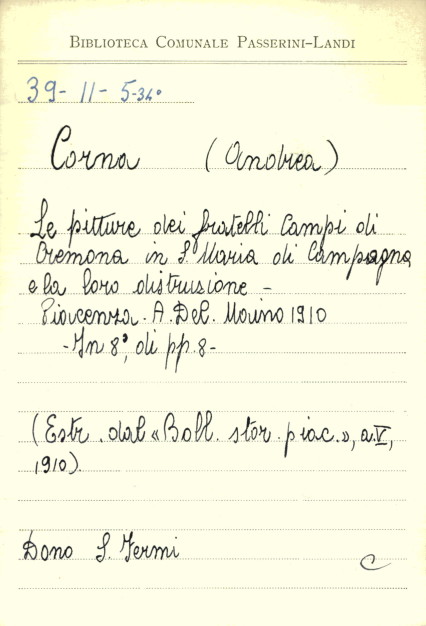 BIBLIOTECA COMUNALE PASSERINI-LANDI
39- 11- 5-34°
Corna (Andrea)
Le pitture dei fratelli Campi di
Cremona in S. Maria di Campagna
e la loro distruzione -
Piacenza. A. Del. Maino 1910
- In 8°, di pp. 8 -
(Estr. dal «Boll. stor. piac.», a. V,
1910).
Dono S. Fermi
C